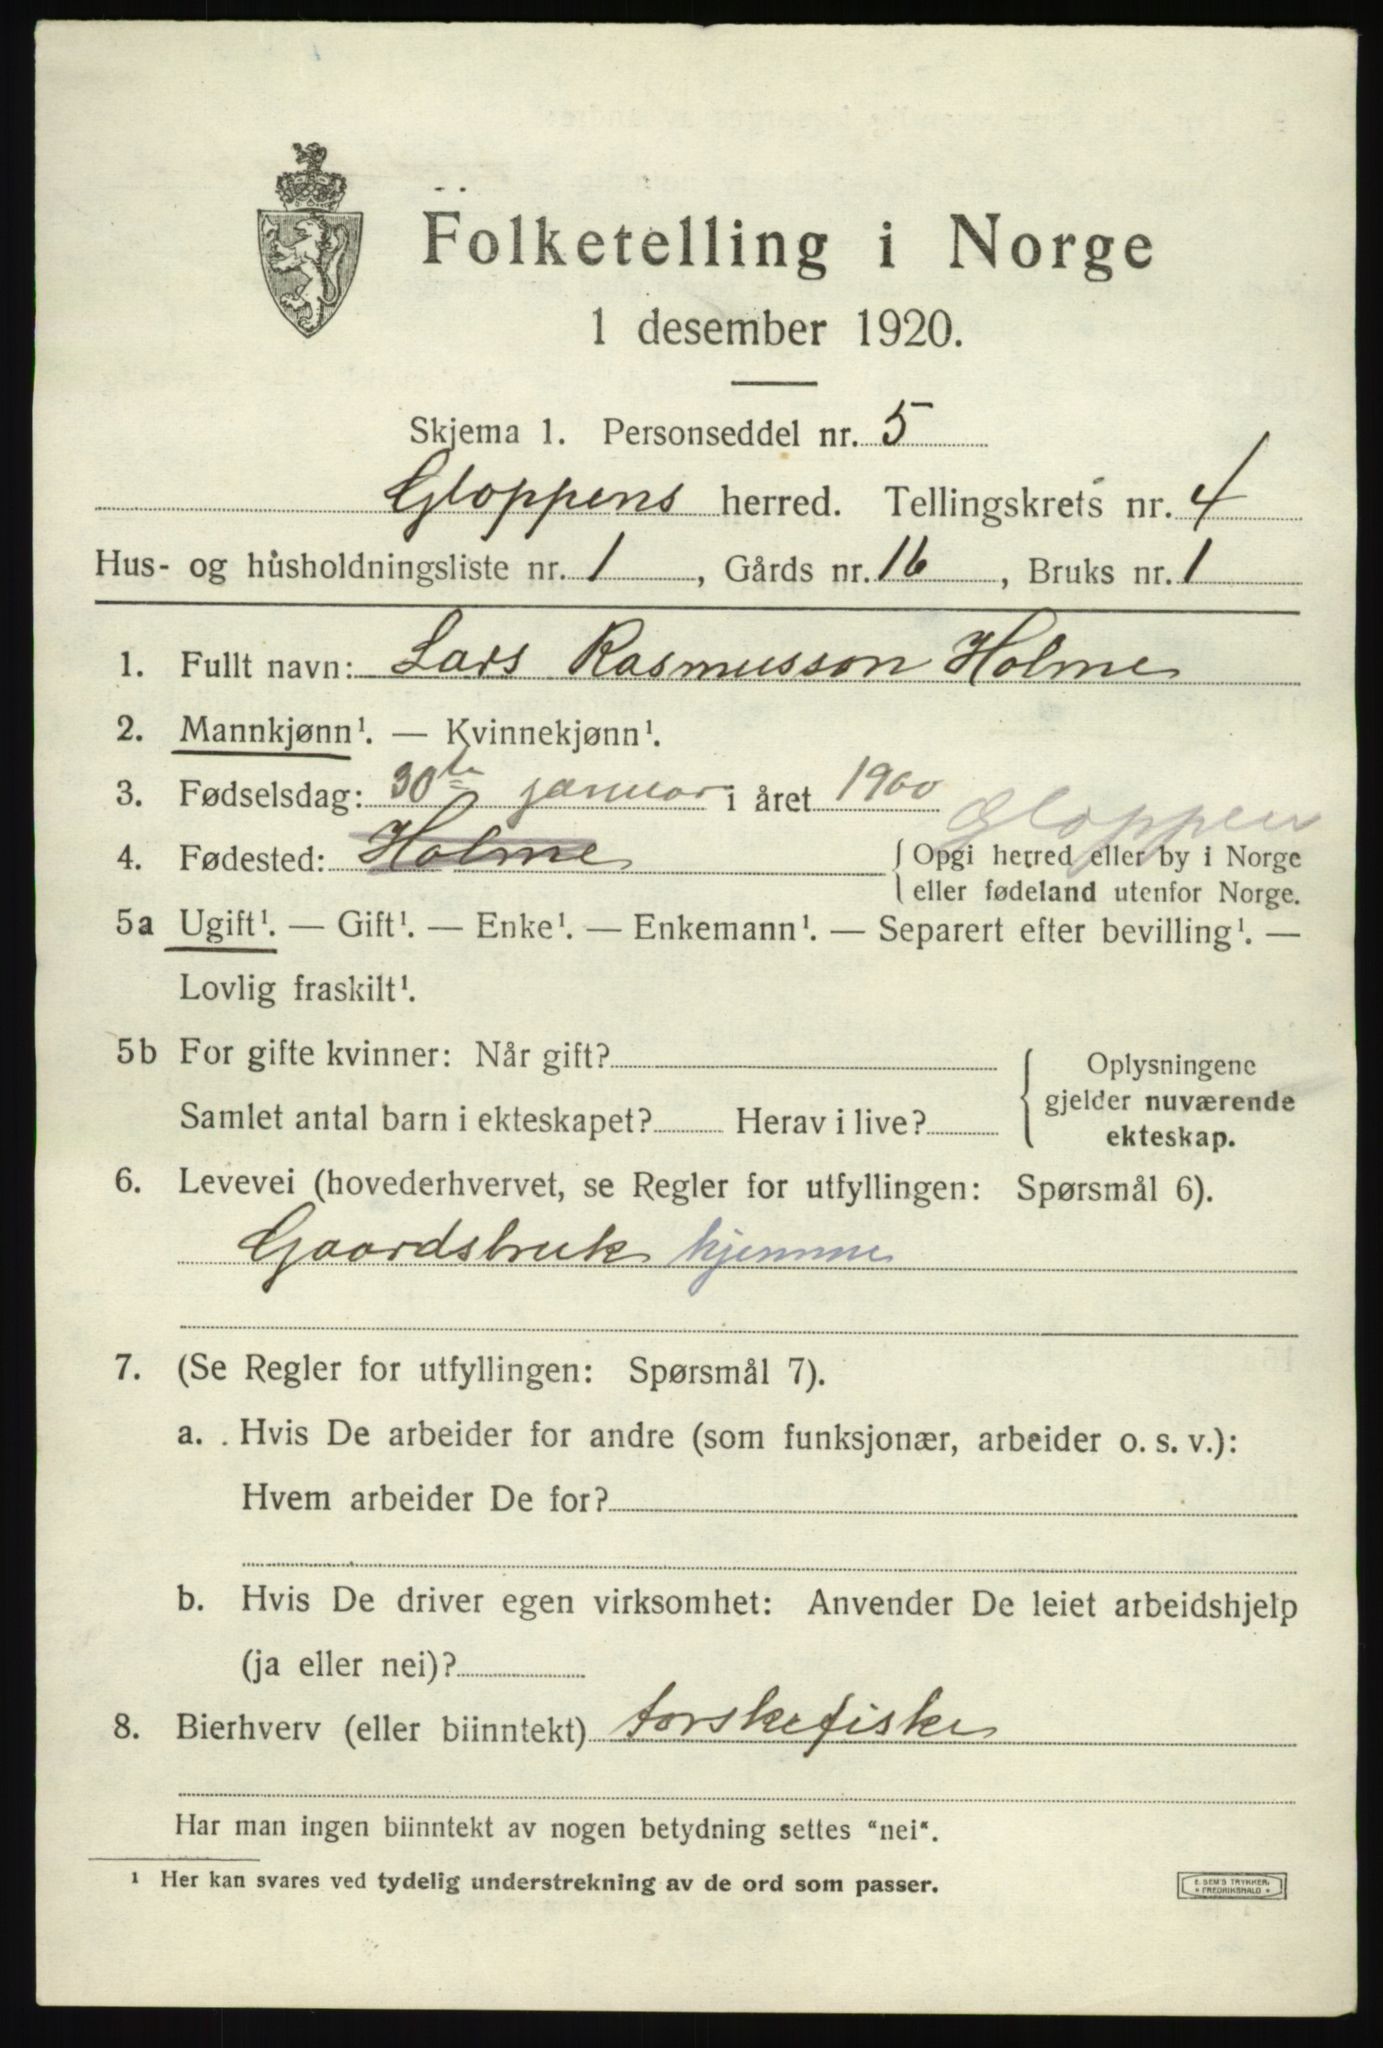 Folketelling i Norge
1 desember 1920.
Skjema 1. Personseddel nr. 5
Gloppens herred. Tellingskrets nr. 4
Hus- og husholdningsliste nr. 1, Gårds nr. 16, Bruks nr. 1
1. Fullt navn: Lars Rasmusson Holme
2. Mannkjønn¹. — Kvinnekjønn¹.
3. Fødselsdag: 30te januar i året 1900
Gloppen
4. Fødested: Holme { Opgi herred eller by i Norge
eller fødeland utenfor Norge.
5a Ugift¹. — Gift¹. — Enke¹. — Enkemann¹. — Separert efter bevilling¹. —
Lovlig fraskilt¹.
5b For gifte kvinner: Når gift?
Samlet antal barn i ekteskapet? Herav i live?
{ Oplysningene
gjelder nuværende
ekteskap.
6. Levevei (hovederhvervet, se Regler for utfyllingen: Spørsmål 6).
Gaardsbruk hjemme
7. (Se Regler for utfyllingen: Spørsmål 7).
a. Hvis De arbeider for andre (som funksjonær, arbeider o. s. v.):
Hvem arbeider De for?
b. Hvis De driver egen virksomhet: Anvender De leiet arbeidshjelp
(ja eller nei)?
8. Bierhverv (eller biinntekt) torskefiske
Har man ingen biinntekt av nogen betydning settes "nei".
¹ Her kan svares ved tydelig understrekning av de ord som passer.
E. SEM'S TRYKKERI
* FREDRIKSHALD *